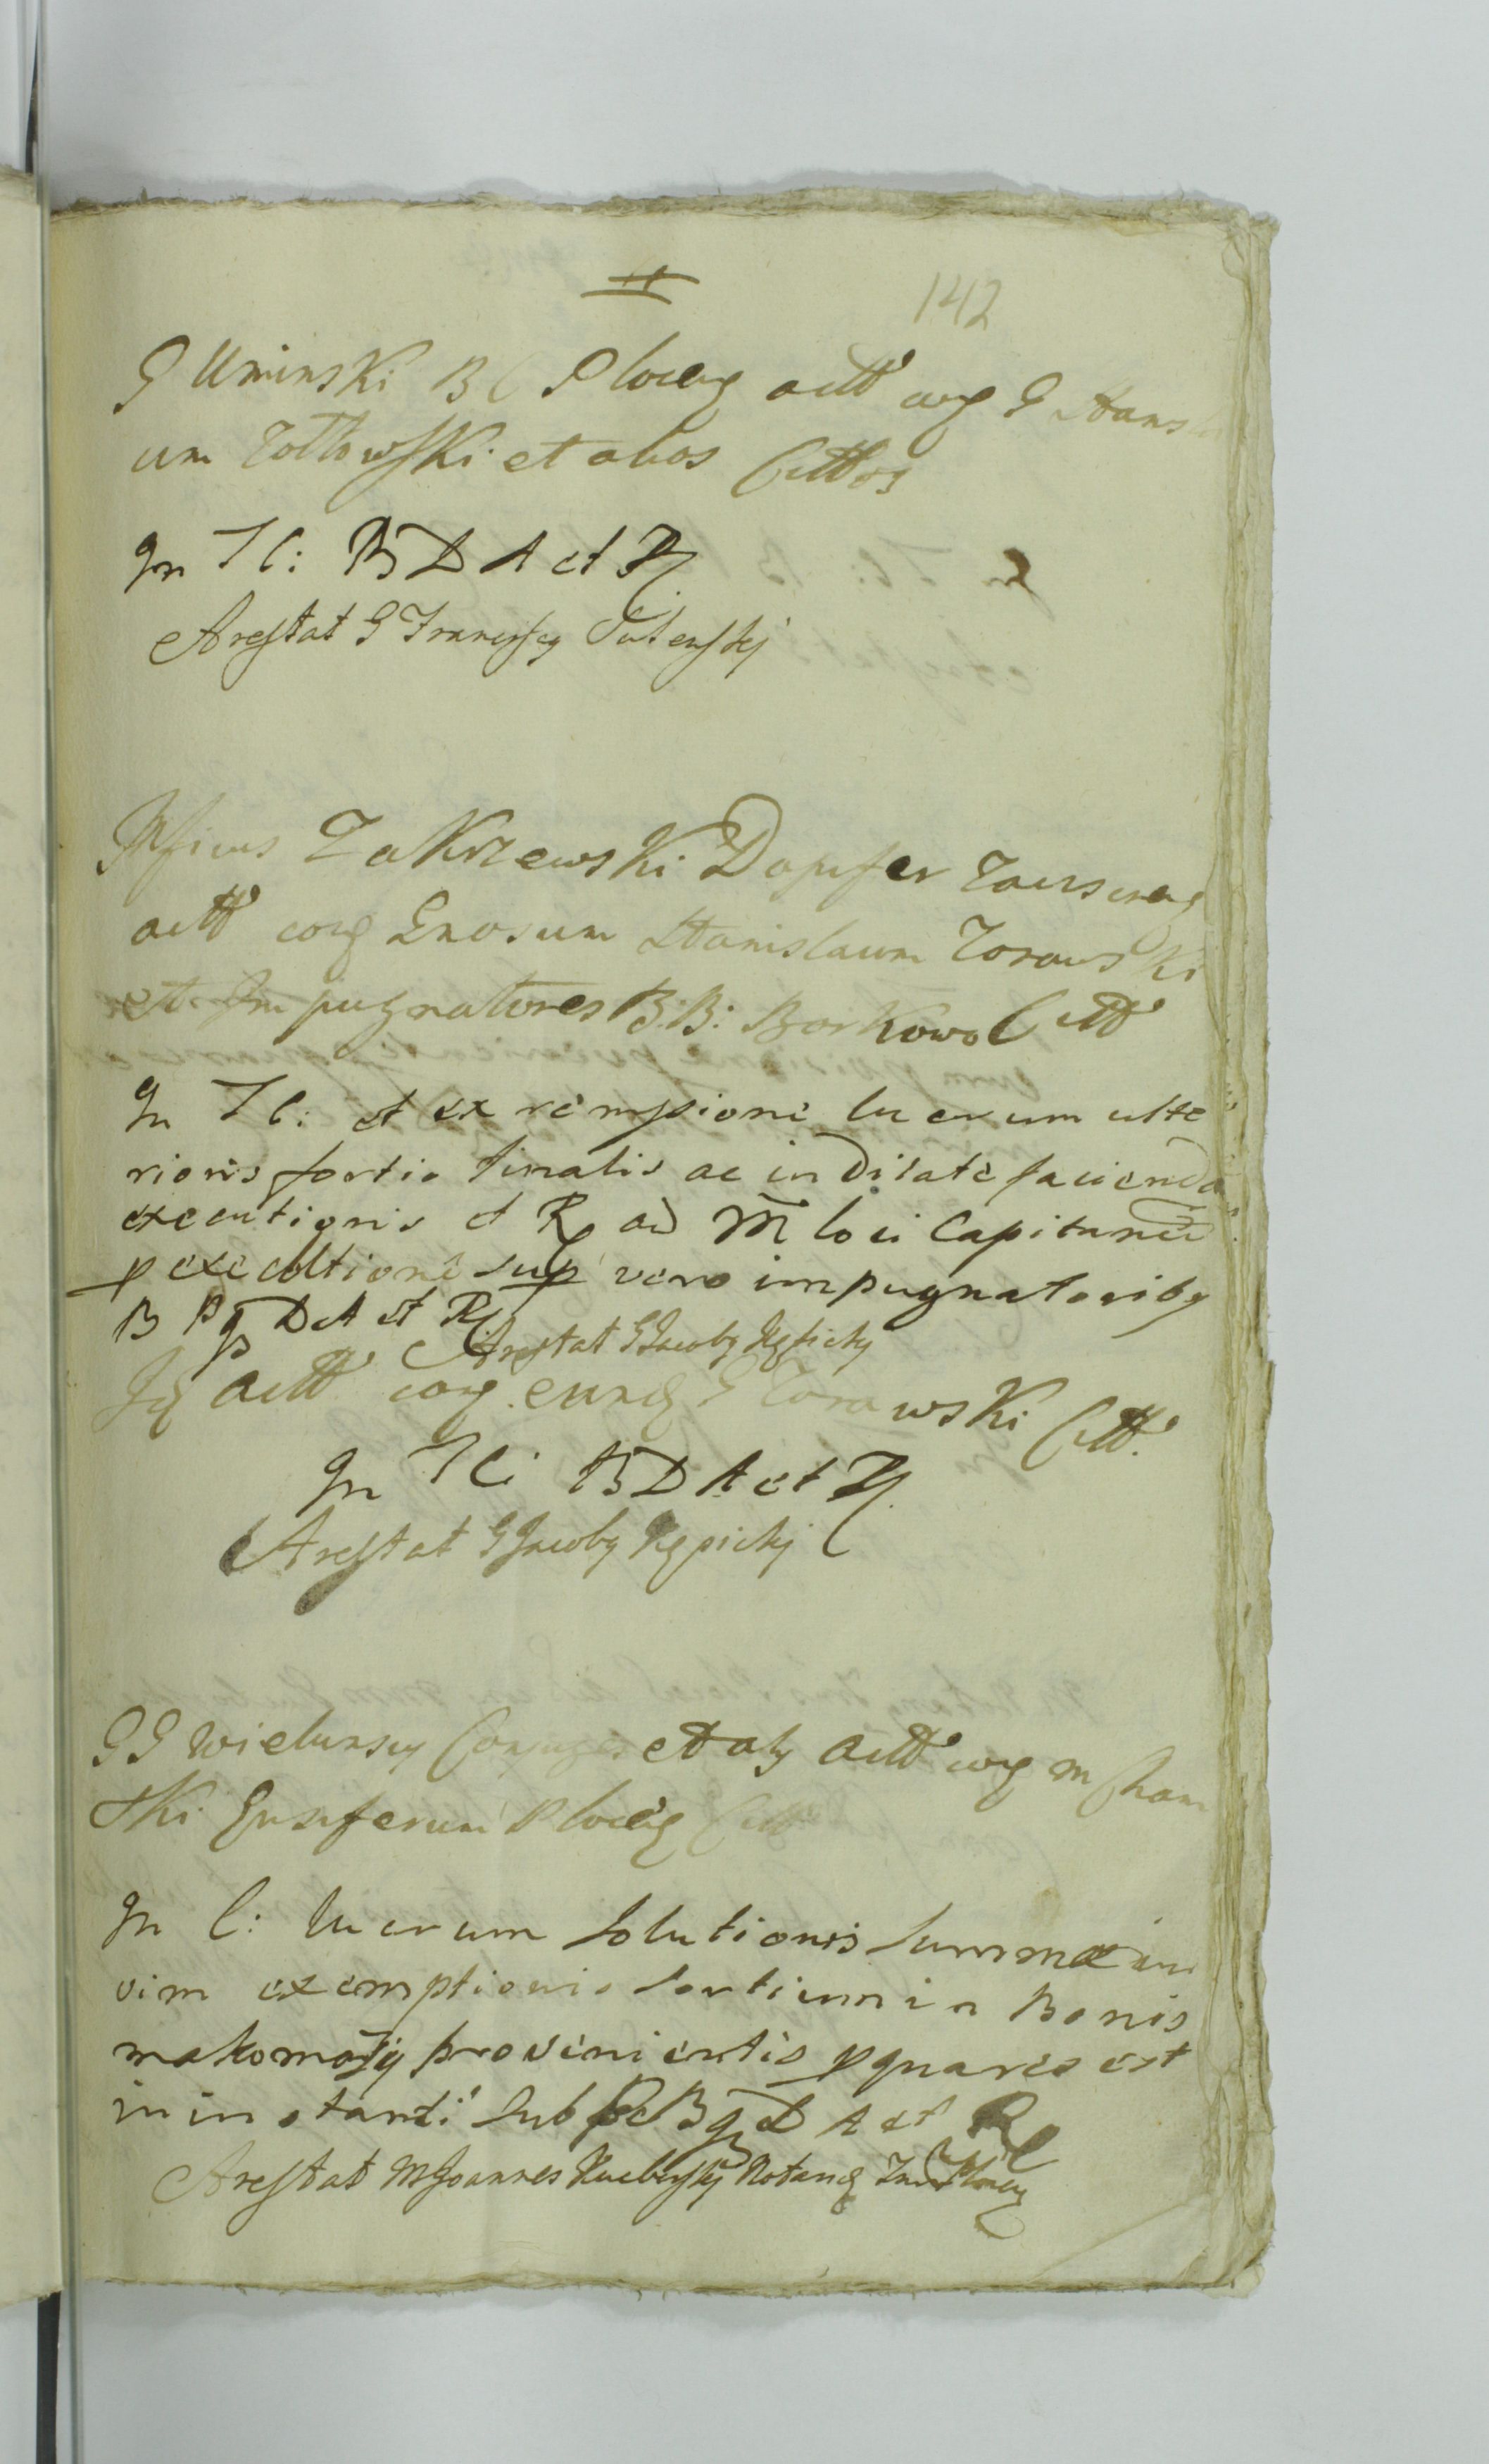 142
G Uminski B C Plocen actt cong G Stanis
um Zottowski et alios Cittos
In T C: B D A et R
Arestat G Francisc
Mficus Zakrzewski Dapifer
actt cong Gnosum Stanislaum Zorawski
et Impugnatores B: B: Borkowo Citt
In T C: et ex rempsione lucrum ulte
rioris sortis finalis ac in dilate facienda
executionis et R ad M loci Capitaneu
p executione sup vero impugnatoribg
B P D A et R
Arestat G Jacobg Kępickj
Id actt cong eund G Zorawski Citt
In T C: B D A et R
Arestat G Jacobg Kępickj
G G Wielunscy Conjuges et aly actt cong M Cham
ski Ensiferum Plocen Citt
In C: lucrum solutionis summæ in
vim exemptionis sortium in Bonis
makomazy provenientis p quares est
in instanti sub B D A et R
Arestat M Joannes Notarig